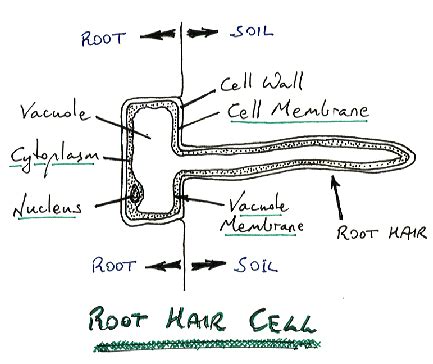 ROOT SOIL
Cell Wall
Vacuole
Cell Membrane
Cytoplasm
Nucleus
Vacuole
Membrane
ROOT HAIR
ROOT SOIL
ROOT HAIR CELL